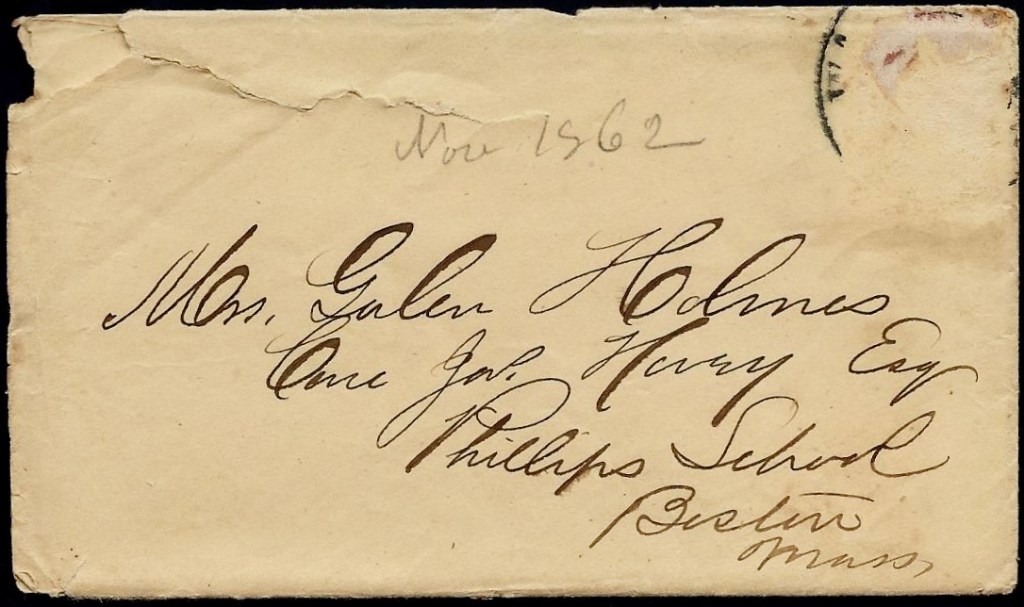 Nov 1862
Mrs. Galen Holmes
Care Jas. Hovey Esq
Phillips School
Boston
Mass,